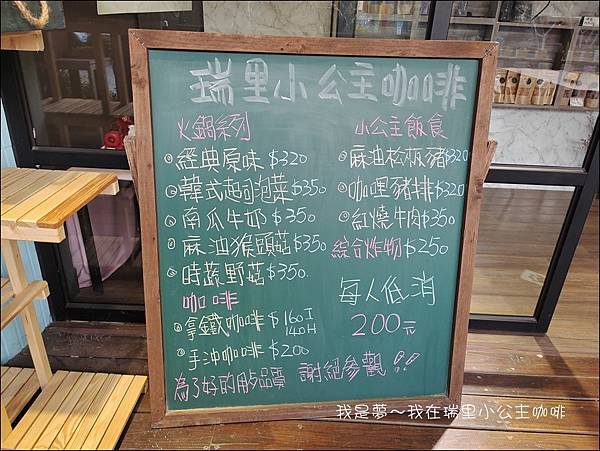 瑞里小公主咖啡
火鍋系列
經典原味$320
韓式起司泡菜$350
南瓜牛奶$350
麻油猴頭菇$350
時蔬野菇$350
咖啡
拿鐵咖啡$160I
140H
手沖咖啡$200
小公主飯食
麻油松板豬$320
咖哩豬排$320
紅燒牛肉$350
綜合炸物$250
每人低消
200元
為了好的服品質 謝絕參觀!!
我是夢~我在瑞里小公主咖啡